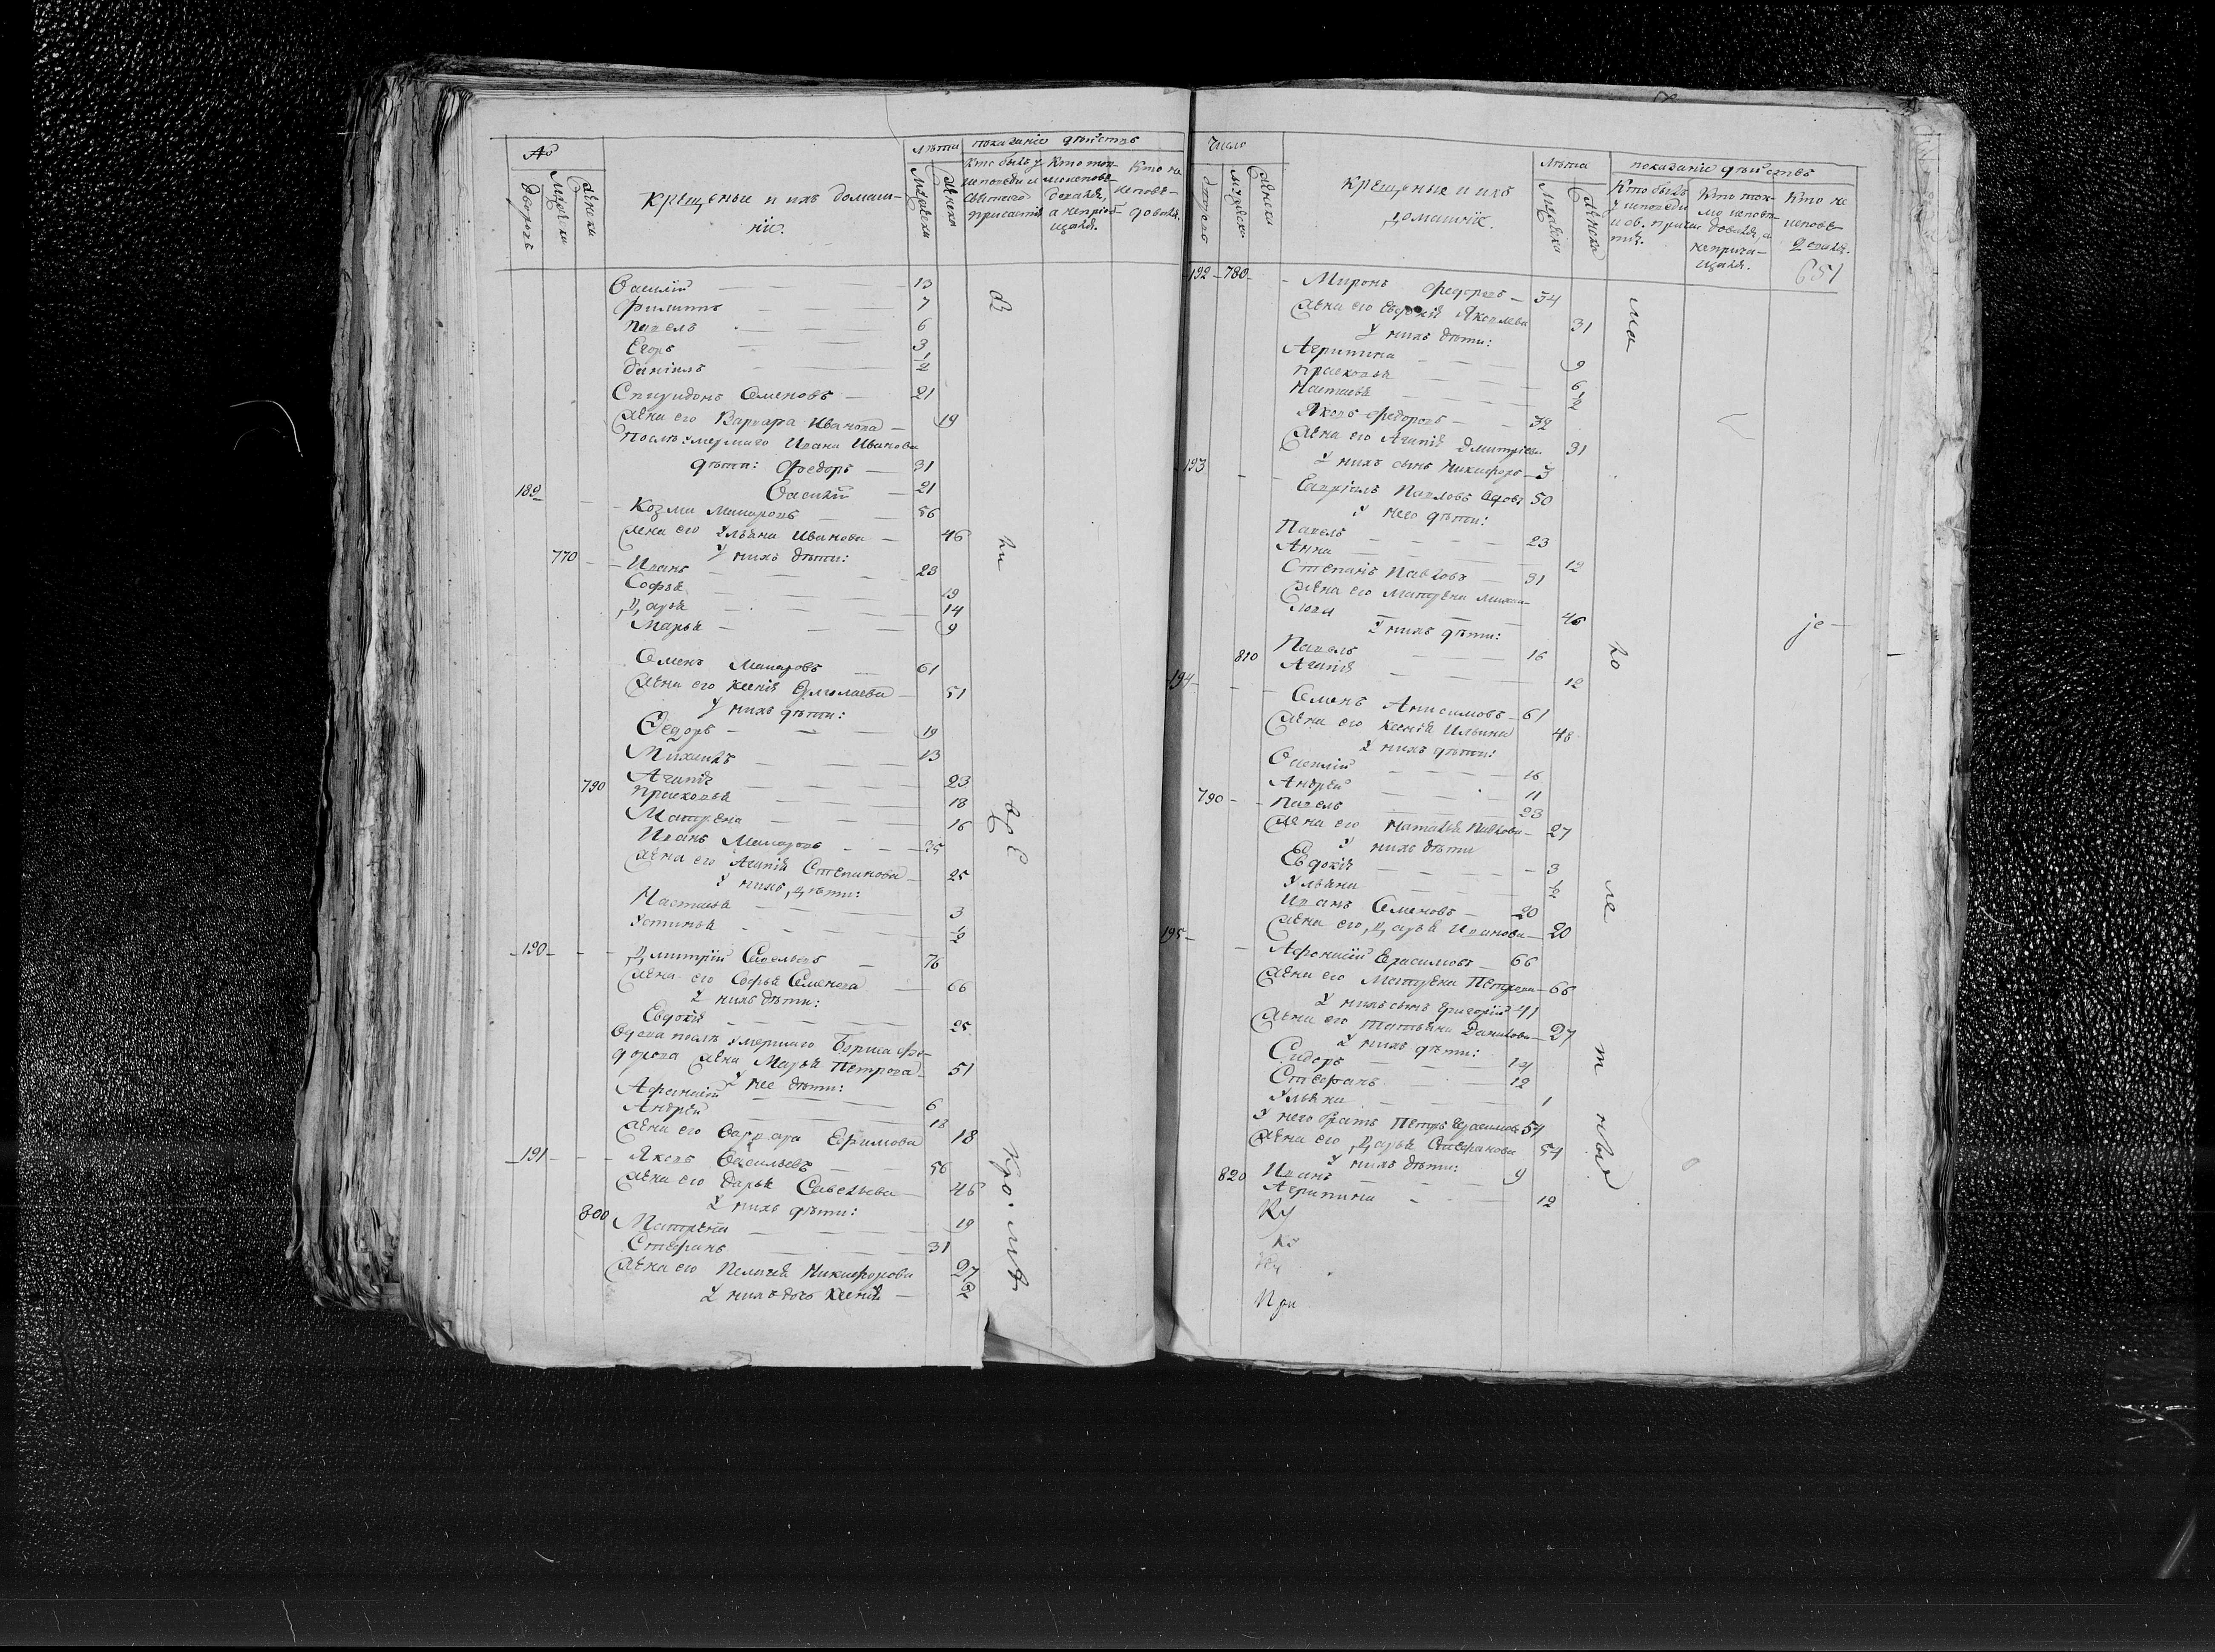 №
Дворовъ
Мужеска
Женска
Крещеные и ихъ домаш-
ніи.
лѣта
Мужеска
Женски
показаніе дѣйствъ
Кто былъ у исповѣди и святаго причастія
Кто токмо исповѣдовался, а непріобщался.
Кто не исповѣдовался.
Василій — 13
Филиппъ — 7
Павелъ — 6
Егоръ — 3
Даніилъ — 1/2
Спиридонъ Семеновъ — 21
Жена его Варвара Иванова — 19
Послѣ умершаго Ивана Иванова
дѣти: Федоръ — 31
Василій — 21
189 Козма Макаровъ — 56
Жена его Ульяна Иванова — 46
у нихъ дѣти:
770 Иванъ — 23
Софья — 19
Дарья — 14
Марья — 9
Семенъ Макаровъ — 61
Жена его Ксенія Ермолаева — 51
у нихъ дѣти:
Федоръ — 19
Михаилъ — 13
Агапія — 23
790 Прасковья — 18
Матрена — 16
Иванъ Макаровъ — 25
Жена его Агапія Степанова — 25
у нихъ дѣти:
Настасья — 3
Устинья — 1/2
190 Дмитрій Савельевъ — 76
Жена его Софья Семенова — 66
у нихъ дѣти:
Евдокія — 25
Вдова послѣ умершаго Бориса Фе-
дорова жена Марья Петрова — 51
у нее дѣти:
Афанасій — 6
Андрей — 18
Жена его Варвара Ефимова 18
191 Яковъ Васильевъ — 56
Жена его Дарья Савельева — 46
у нихъ дѣти:
800 Матрена — 19
Стефанъ — 31
Жена его Пелагея Никифорова 27
у нихъ дочь Ксенія — 2
Число
дворовъ
мужеска
женски
Крещеные и ихъ
домашніе.
лѣта
Мужеска
Женска
показаніе дѣйствъ
Кто былъ у исповѣди и св. причастія.
Кто токмо исповѣдовался, а непричащался.
Кто не исповѣдовался.
651
192 — 780 — Миронъ Федоровъ — 34
Жена его Яковлева 31
у нихъ дѣти:
Агрипина — 9
Прасковья — 6
Настасья — 1/2
Яковъ Федоровъ — 32
Жена его Агапія Дмитріева 31
у нихъ сынъ Никифоръ — 3
193 Гавріилъ Павловъ вдовъ 50
у него дѣти:
Павелъ — 23
Анна — 12
Степанъ Павловъ — 31
Жена его Матрена Михаи-
лова — 46
у нихъ дѣти:
Павелъ — 16
810 Агапія — 12
194 Семенъ Анисимовъ — 61
Жена его Ксенія Ильина 48
у нихъ дѣти:
Василій — 16
Андрей — 11
790 — Павелъ — 23
Жена его Наталья Павлова — 27
у нихъ дѣти
Евдокія — 3
Ульяна — 1/2
Иванъ Семеновъ — 20
Жена его Дарья Иванова — 20
195 — Афонасій Герасимовъ — 66
Жена его Матрена Петрова — 66
у нихъ сынъ Григорій 41
Жена его Татьяна Данилова — 27
у нихъ дѣти:
Сидоръ — 14
Стефанъ — 12
Ульяна — 1
у него братъ Петръ Герасимовъ 54
Жена его Дарья Стефанова 54
у нихъ дѣти:
820 Иванъ — 9
Агрипина — 12
Ку
При